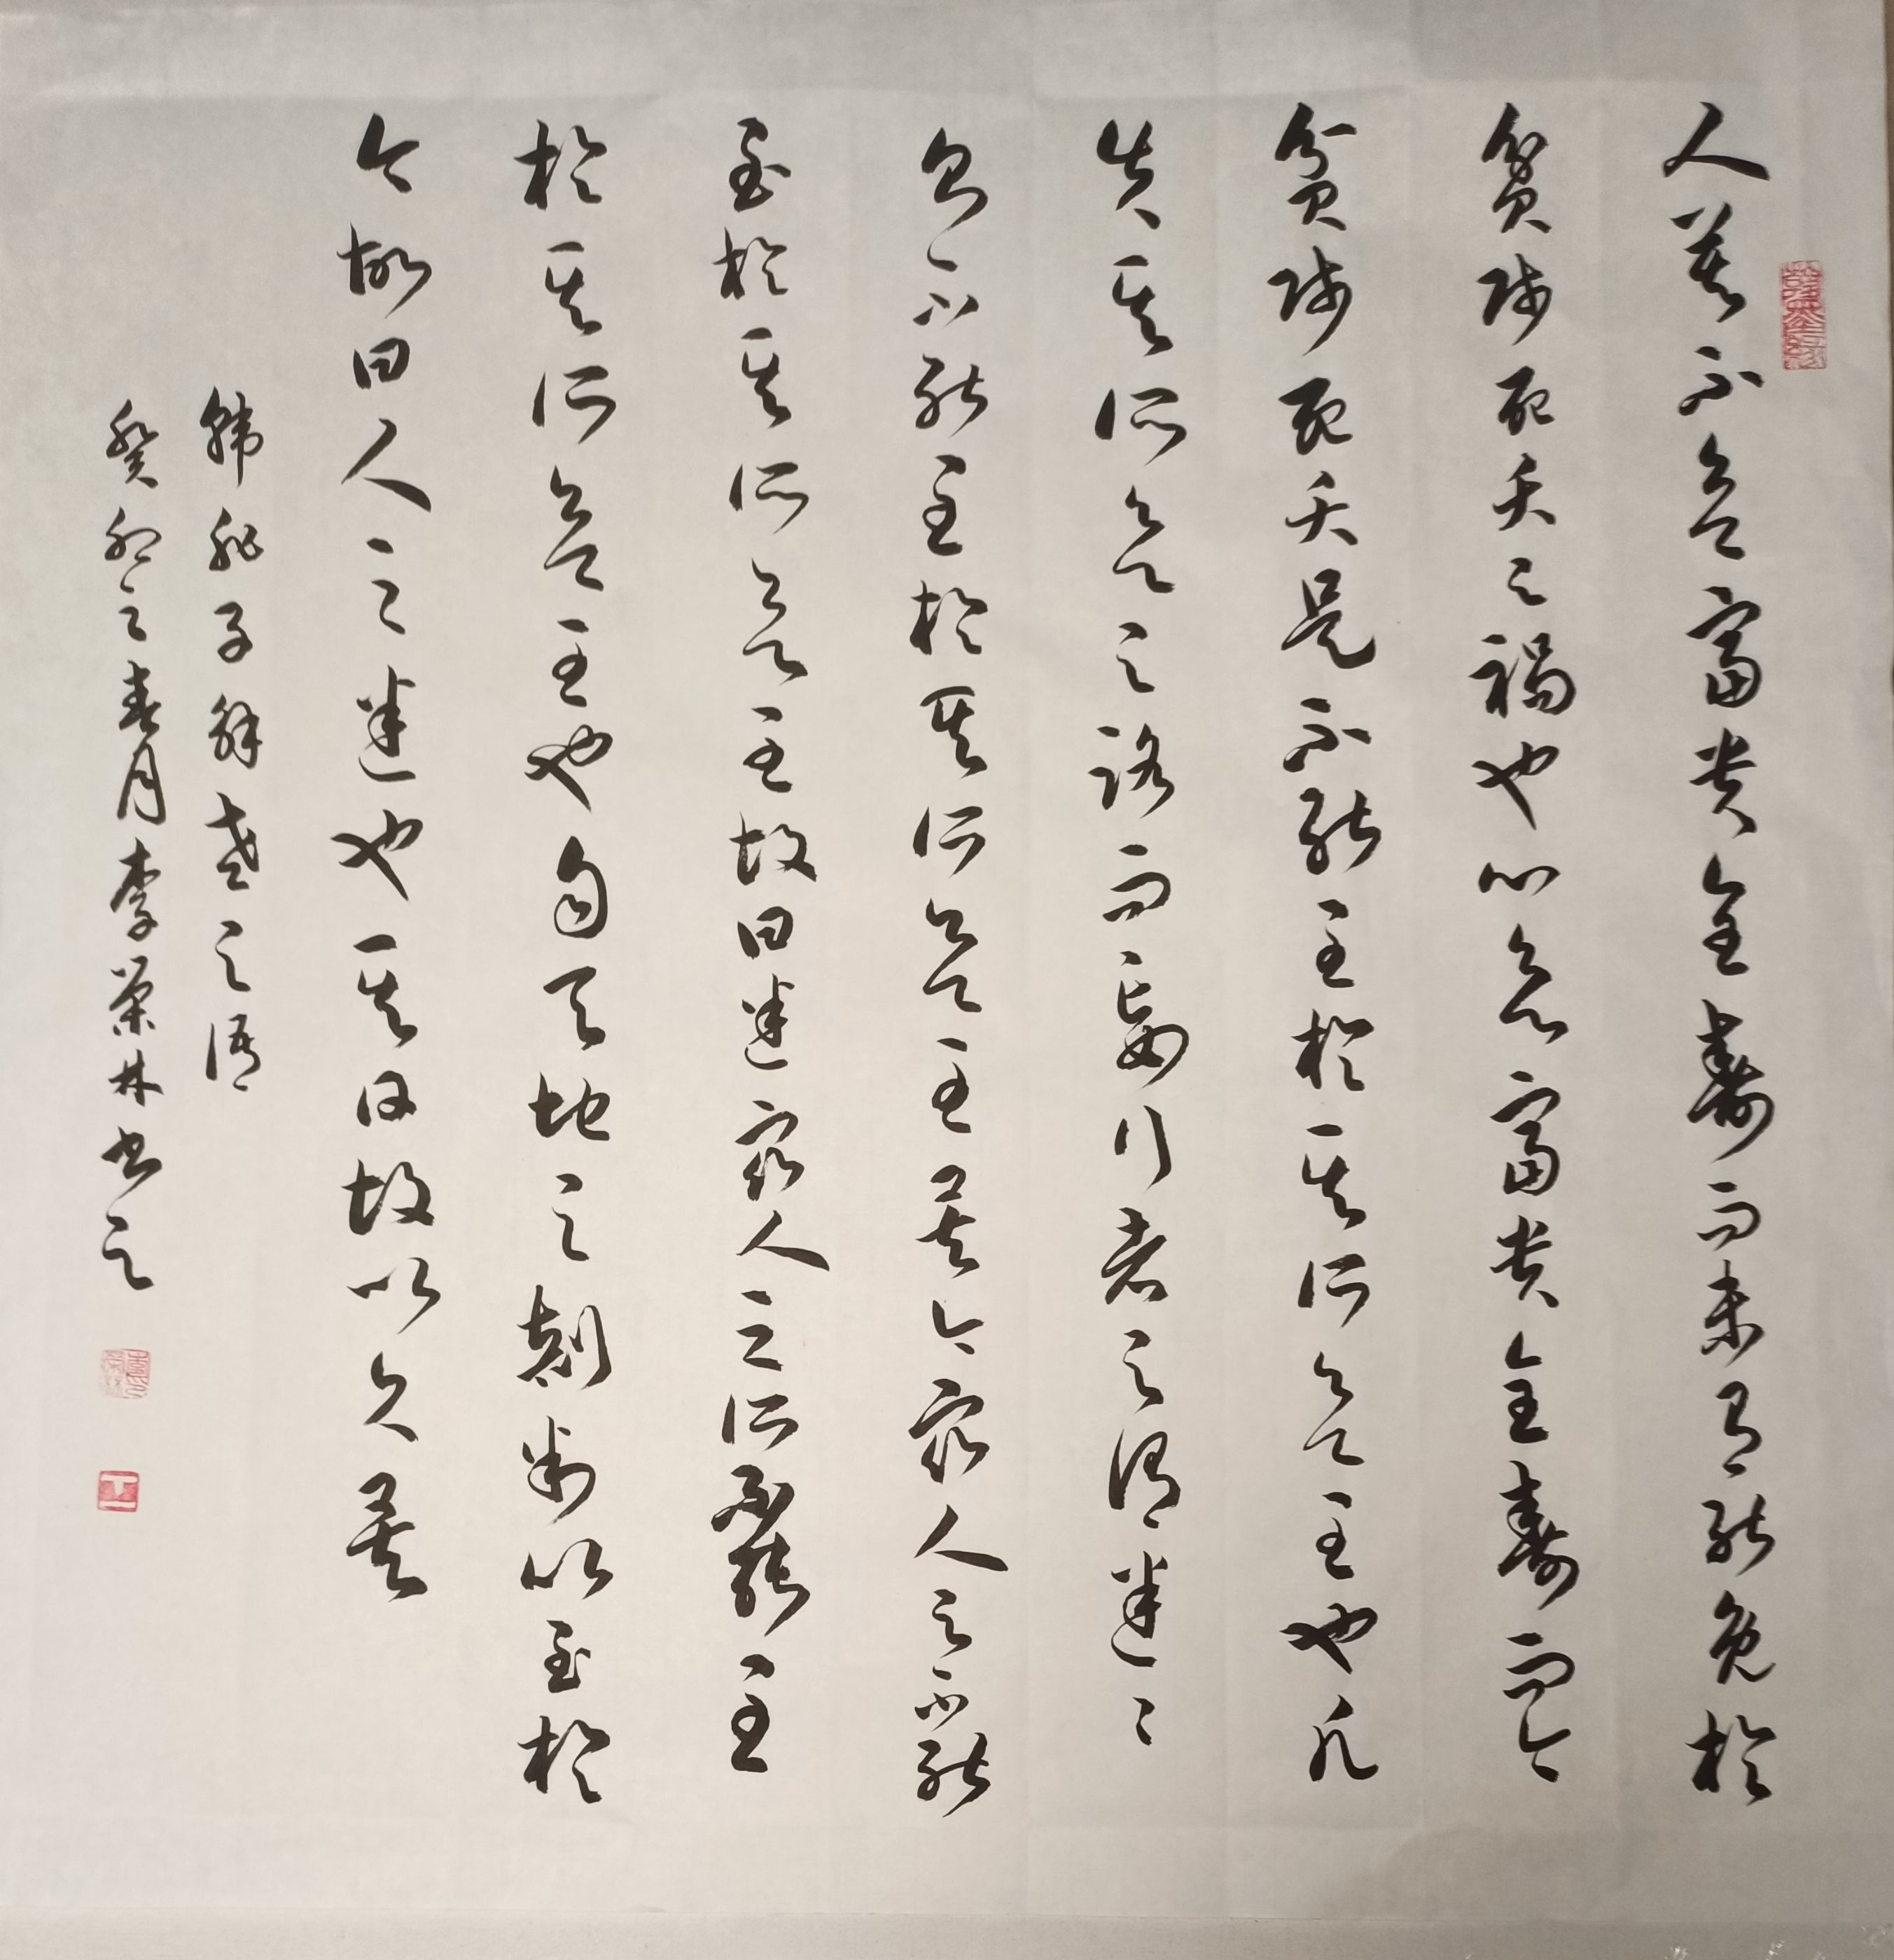 人莫不欲富貴全壽而未有能免於
貧賤死夭之禍也心欲富貴全壽而今
貧賤死夭是不能至於其所欲至也凡
失其所欲之路而妄行者之謂迷〻
則不能至於其所欲至矣今眾人之不能
至於其所欲至故曰迷眾人之所不能至
於其所欲至也自天地之剖判以至於
今故曰人之迷也其日故以久矣
韓非子解老之語
癸卯之春月李榮林書之